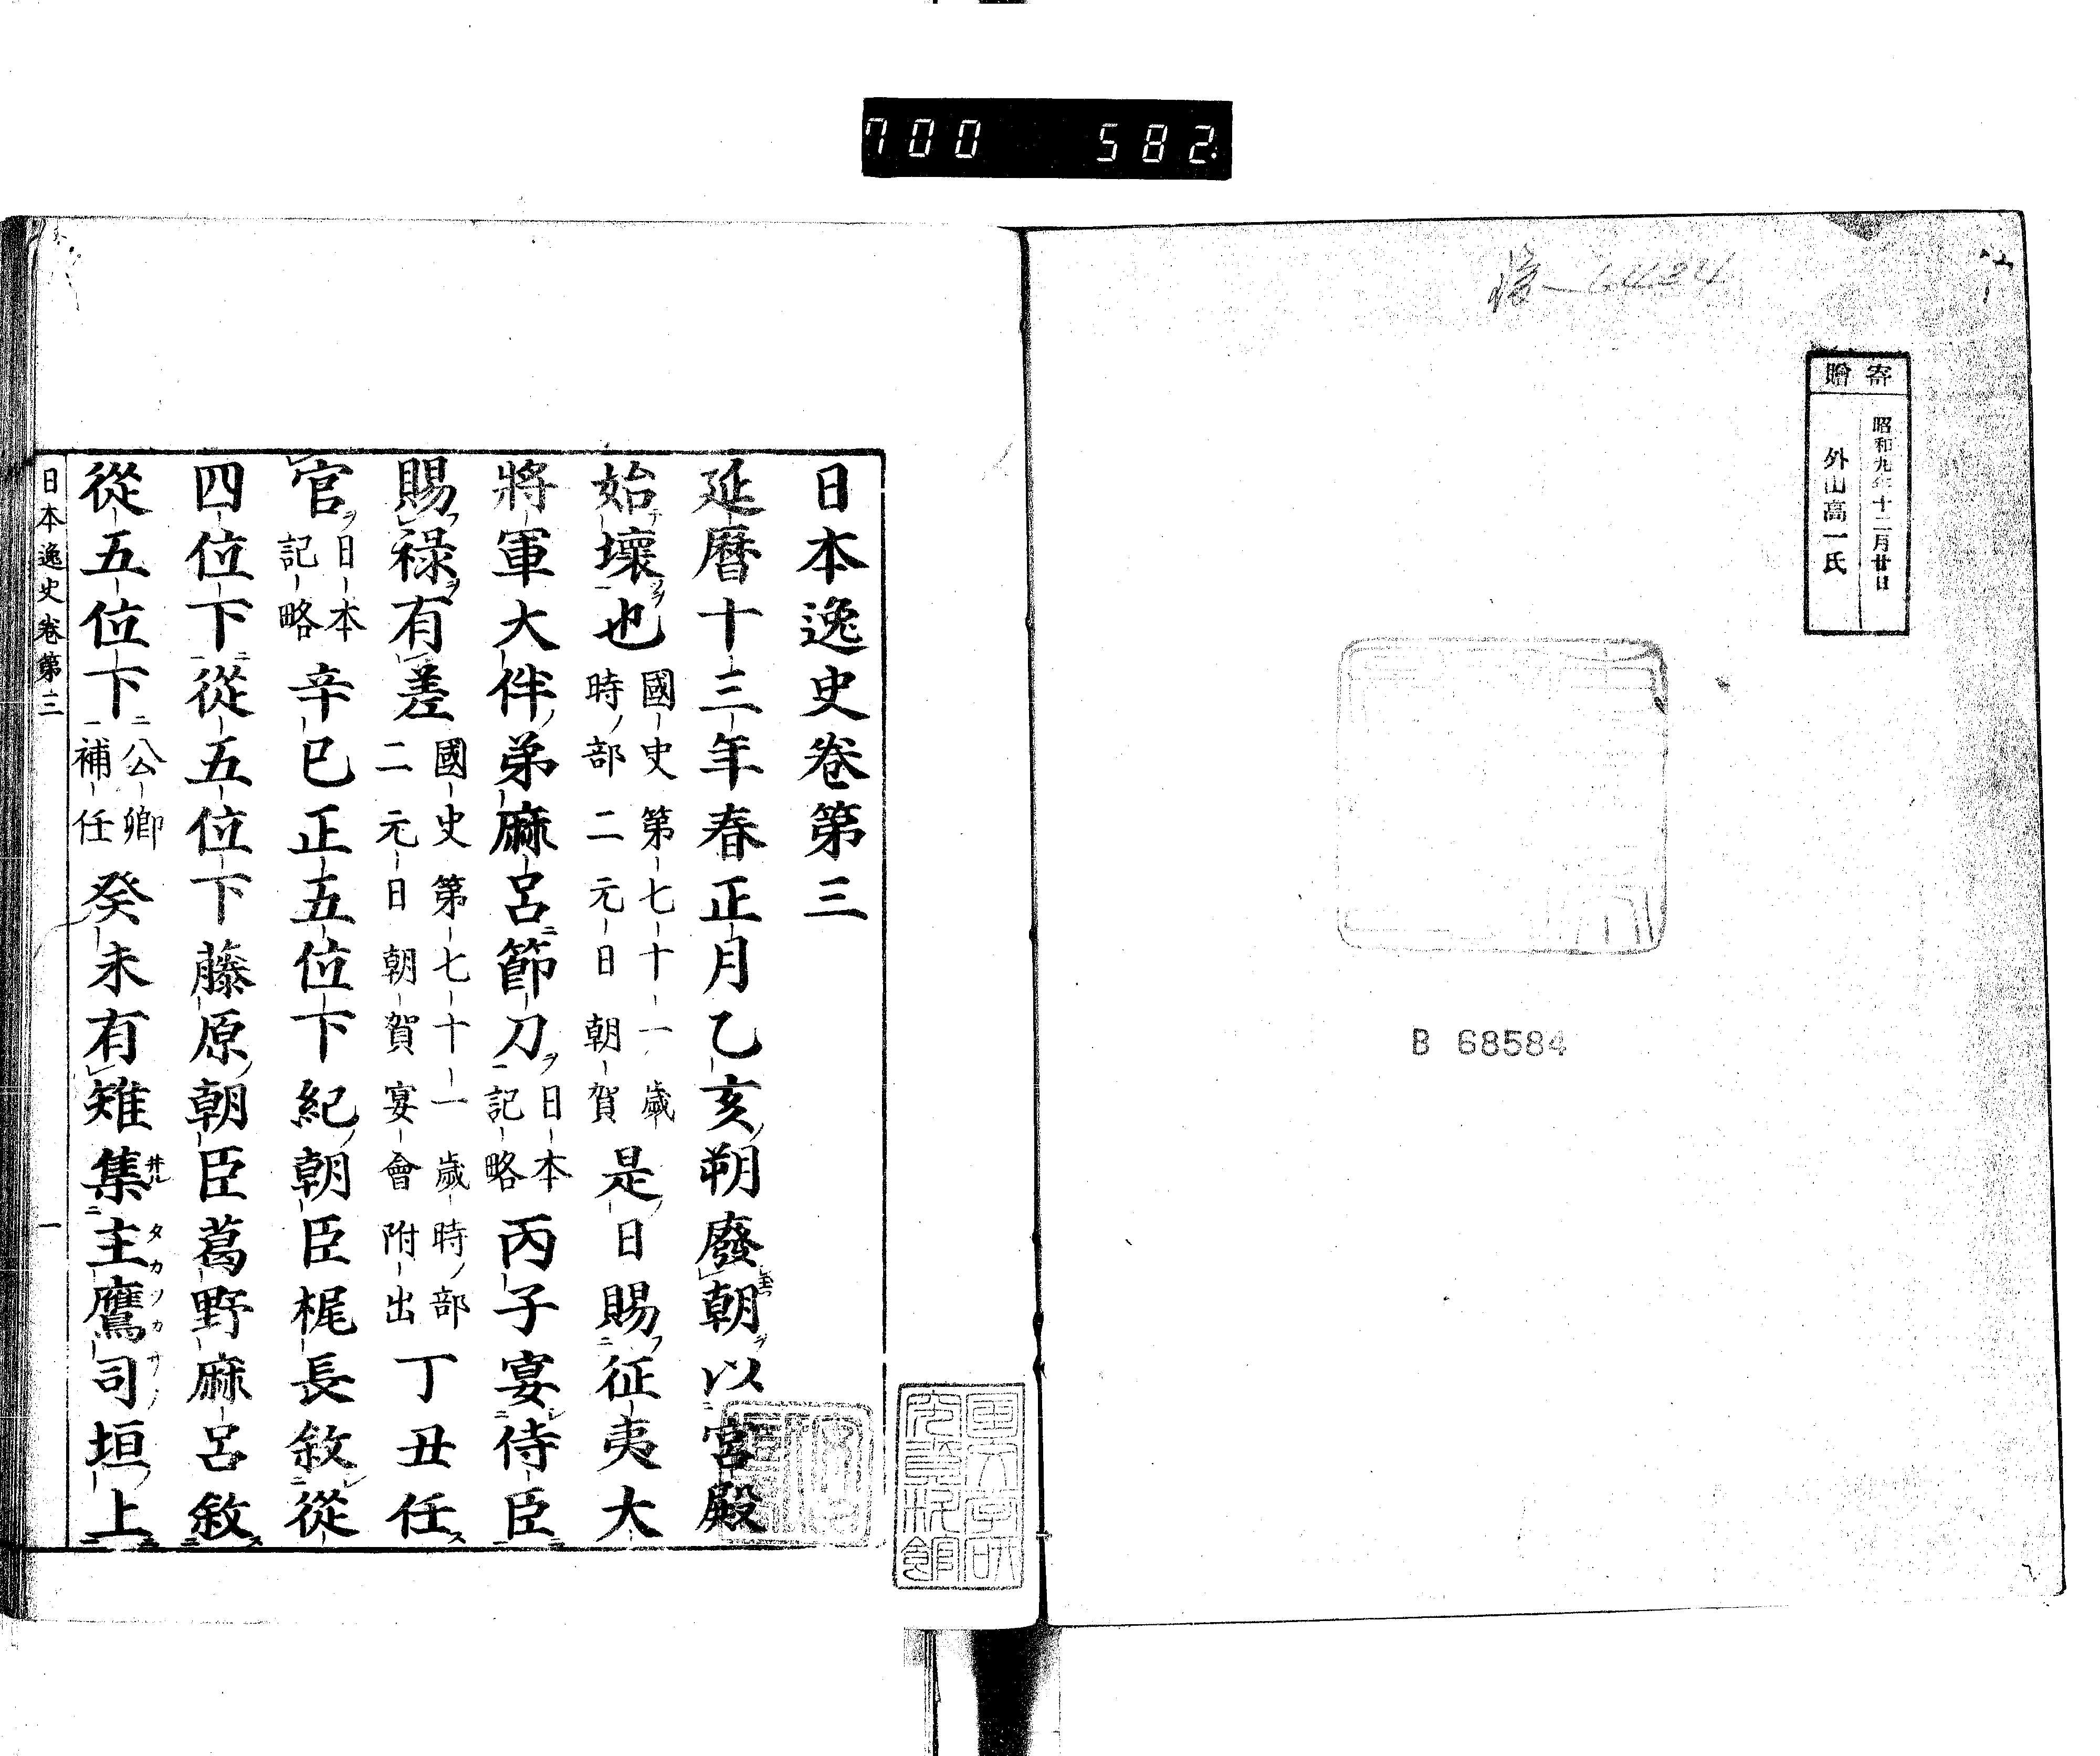 700 582
寄贈
昭和九年十二月廿日
外山高一氏
B 68584
日本逸史卷第三
延曆十三年春正月乙亥朔廢朝以宮殿
始壞也 國史第七十一歲時部二元日朝賀 是日賜征夷大
將軍大伴弟麻呂節刀 日本記略 丙子宴侍臣
賜祿有差 國史第七十一歲時部二元日朝賀宴會附出 丁丑任
官 日本記略 辛巳正五位下紀朝臣梶長敘從
四位下從五位下藤原朝臣葛野麻呂敘
從五位下 公卿補任 癸未有雉集主鷹司垣上
日本逸史卷第三 一